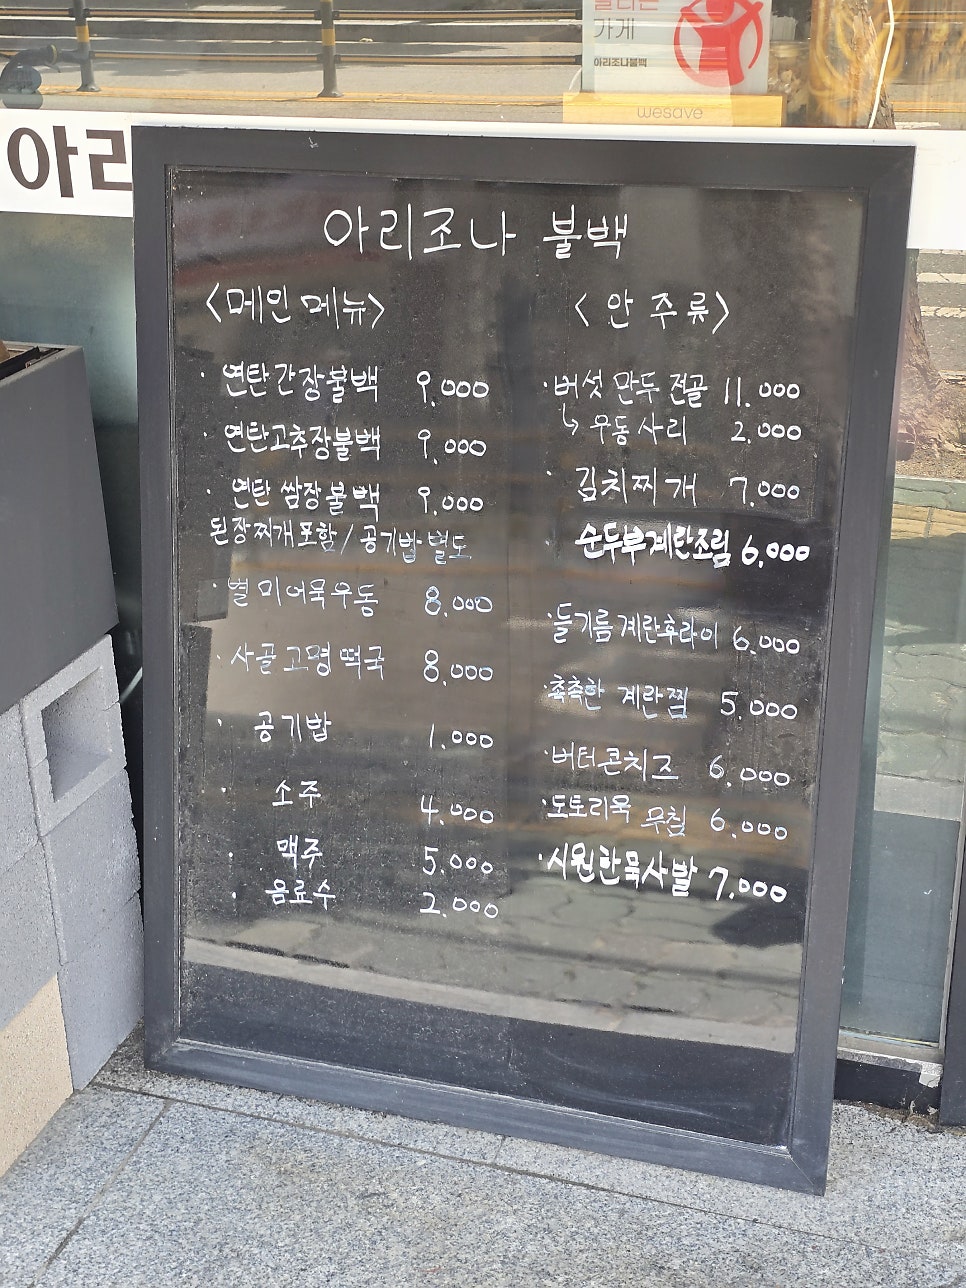 가게
아리조나불백
wesave
아리
아리조나 불백
<메인 메뉴>
· 연탄간장불백 9,000
· 연탄고추장불백 9,000
· 연탄 쌈장불백 9,000
된장찌개포함/공기밥 별도
· 별미어묵우동 8,000
· 사골고명떡국 8,000
· 공기밥 1,000
· 소주 4,000
· 맥주 5,000
· 음료수 2,000
<안주류>
· 버섯 만두 전골 11.000
↳ 우동사리 2,000
· 김치찌개 7,000
순두부계란조림 6,000
· 들기름계란후라이 6,000
· 촉촉한 계란찜 5,000
· 버터콘치즈 6,000
· 도토리묵 무침 6,000
· 시원한묵사발 7,000